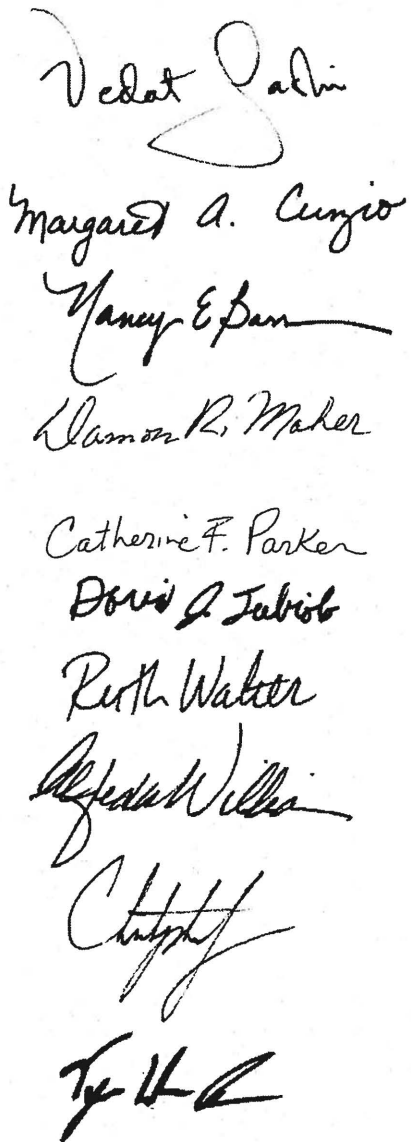 Vedat Gashi
Margaret A. Cunzio
Nancy E. Barr
Damon R. Maher
Catherine F. Parker
David J. Tubiolo
Ruth Walter
Alfreda Willia
Christopher
Tyr